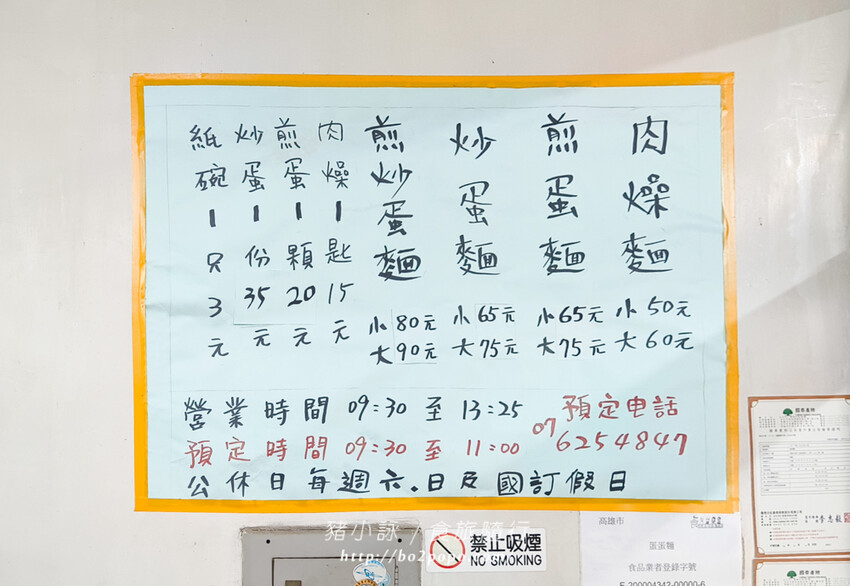 肉燥麵 小50元 大60元
煎蛋麵 小65元 大75元
炒蛋麵 小65元 大75元
煎炒蛋麵 小80元 大90元
肉燥1匙15元
煎蛋1顆20元
炒蛋1份35元
紙碗1只3元
營業時間 09:30 至 13:25
預定時間 09:30 至 11:00
預定電話
07 6254847
公休日每週六.日及國訂假日
豬小詠 / 食旅隨行
禁止吸煙
NO SMOKING
高雄市
食品業者登錄字號
E-200004342-00000-6